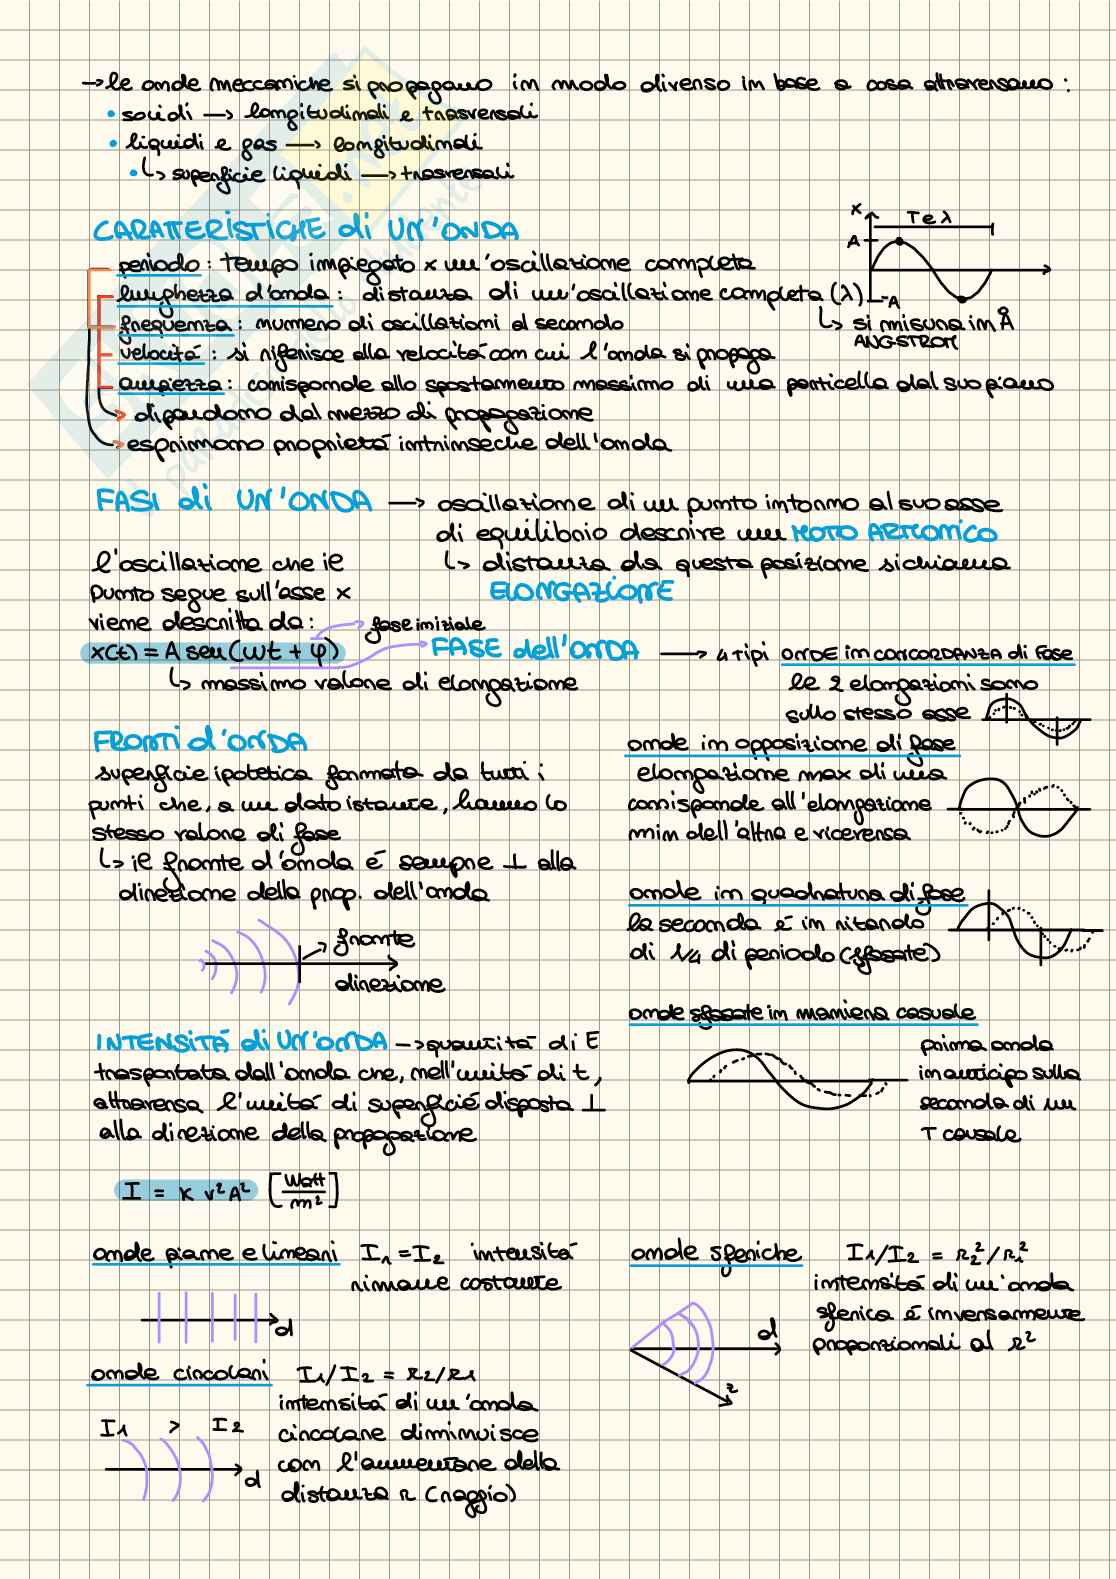 → le onde meccaniche si propagano in modo diverso in base a cosa attraversano :
• solidi → longitudinali e trasversali
• liquidi e gas → longitudinali
• ↳ superficie liquidi → trasversali
CARATTERISTICHE di UN'ONDA
periodo : tempo impiegato x un'oscillazione completa
lunghezza d'onda : distanza di un'oscillazione completa (λ)
↳ si misura in Å
ANGSTROM
frequenza : numero di oscillazioni al secondo
velocitá : si riferisce alla velocitá con cui l'onda si propaga
ampiezza : corrisponde allo spostamento massimo di una particella dal suo piano
→ dipendono dal mezzo di propagazione
→ esprimono proprietá intrinseche dell'onda
x
T e λ
A
-A
FASI di UN'ONDA → oscillazione di un punto intorno al suo asse
di equilibrio descrive un MOTO ARMONICO
↳ distanza da questa posizione si chiama
ELONGAZIONE
l'oscillazione che il
punto segue sull'asse x
viene descritta da :
→ fase iniziale
x(t) = A sen (ωt + φ) → FASE dell'ONDA → 4 tipi
↳ massimo valore di elongazione
ONDE in CONCORDANZA di Fase
le 2 elongazioni sono
sullo stesso asse
onde in opposizione di fase
elongazione max di una
corrisponde all'elongazione
min dell'altra e viceversa
onde in quadratura di fase
la seconda é in ritardo
di 1/4 di periodo (sfasate)
onde sfasate in maniera casuale
prima onda
in anticipo sulla
seconda di un
T casuale
FRONTI d'ONDA
superficie ipotetica formata da tutti i
punti che, a un dato istante, hanno lo
stesso valore di fase
↳ il fronte d'onda é sempre ⊥ alla
direzione della prop. dell'onda
→ fronte
direzione
INTENSITÁ di UN'ONDA → quantitá di E
trasportata dall'onda che, nell'unitá di t,
attraversa l'unitá di superficie disposta ⊥
alla direzione della propagazione
I = K v²A² [Watt/m²]
onde piane e lineari I₁ = I₂ intensitá
rimane costante
d
onde circolari I₁/I₂ = R₂/R₁
intensitá di un'onda
circolare diminuisce
con l'aumentare della
distanza r (raggio)
I₁ > I₂
d
onde sferiche I₁/I₂ = r₂²/r₁²
intensitá di un'onda
sferica é inversamente
proporzionali al r²
d
r